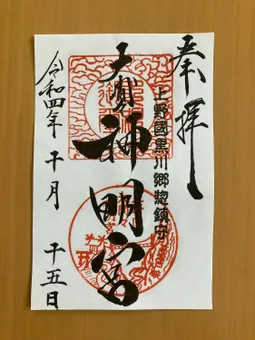 奉拝
上野國黒川郷惣鎮守
神明宮
令和四年 十月 十五日